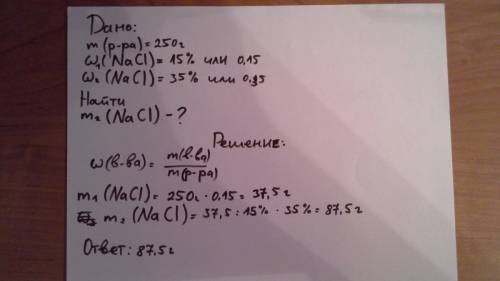 Дано:
m (р-ра) = 250г
ω₁ (NaCl) = 15% или 0,15
ω₂ (NaCl) = 35% или 0,35
Найти
m₂ (NaCl) - ?
Решение:
ω (в-ва) = m(в-ва) / m(р-ра)
m₁ (NaCl) = 250г · 0.15 = 37,5г
m₂ (NaCl) = 37,5 : 15% · 35% = 87,5г
Ответ: 87,5г